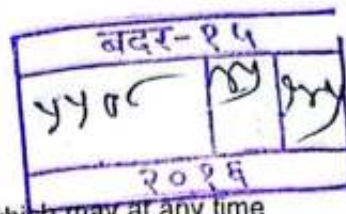 बदर-१५
५५०८
२०१६
which may at any time